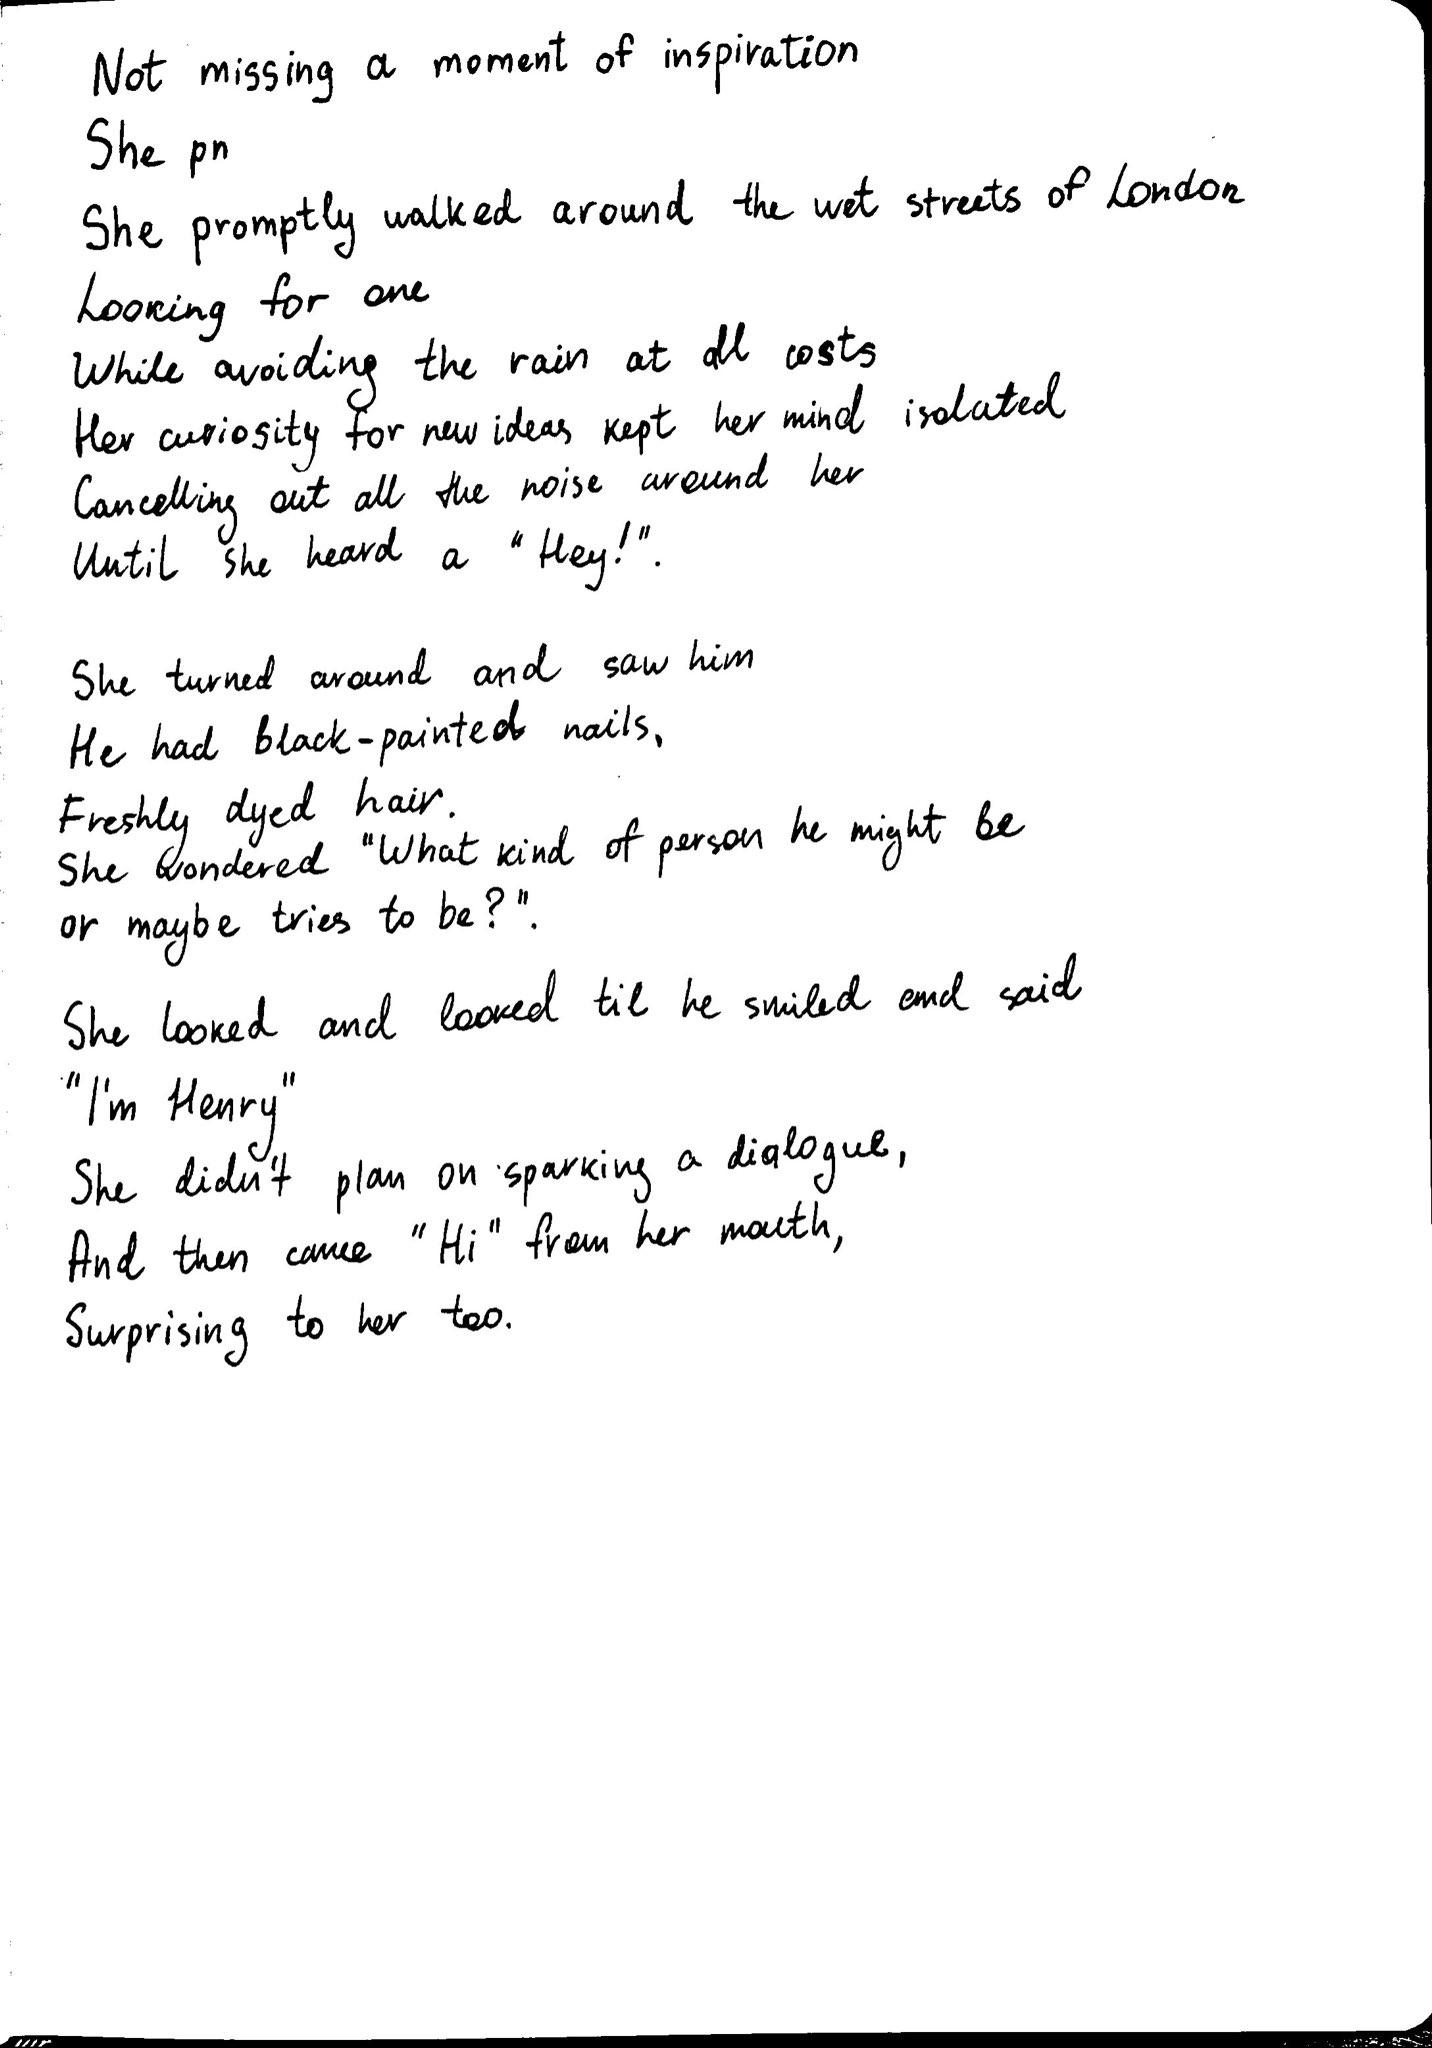 Not missing a moment of inspiration
She pn
She promptly walked around the wet streets of London
Looking for one
While avoiding the rain at all costs
Her curiosity for new ideas kept her mind isolated
Cancelling out all the noise around her
Until she heard a "Hey!".
She turned around and saw him
He had black-painted nails,
Freshly dyed hair.
She wondered "What kind of person he might be
or maybe tries to be?".
She looked and looked til he smiled and said
"I'm Henry"
She didn't plan on sparking a dialogue,
And then came "Hi" from her mouth,
Surprising to her too.